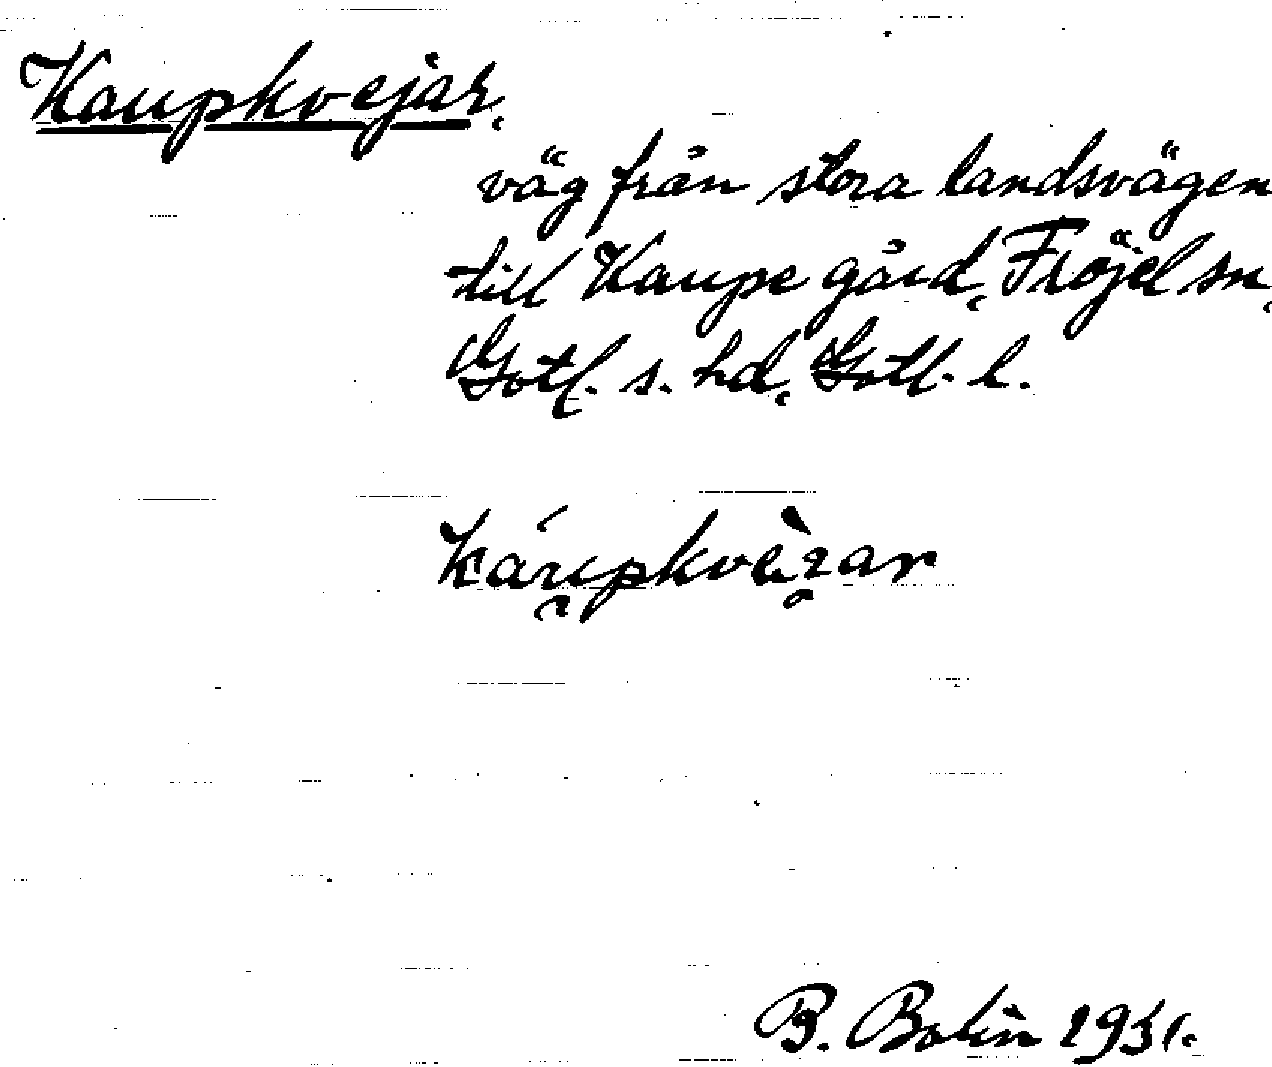 Kaupkvejar,
väg från stora landsvägen
till Kaupe gård, Fröjel sn,
Gotl. s. hd, Gotl. l.
káu̯pkvèi̯ar
B. Bolin 1931.